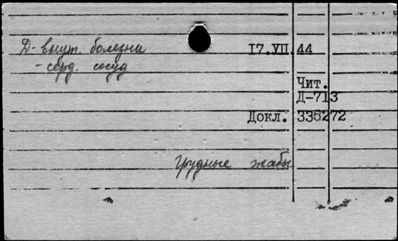 Д- внут. болезни
- серд. сосуд
17.VII 44
Чит.
Д-713
Докл. 336272
Грудные жабы